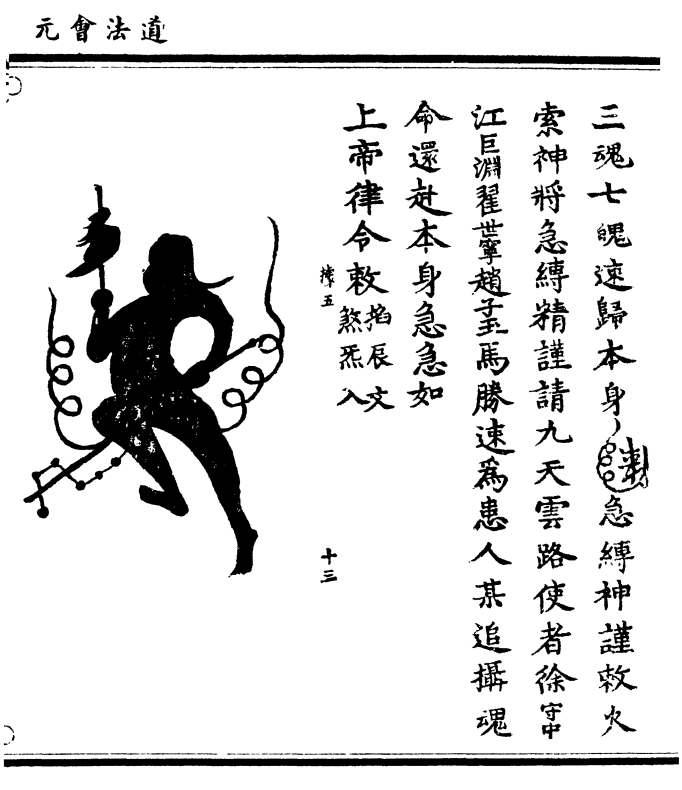 道法會元
三魂七魄速歸本身急縛神謹敕火
索神將急縛精謹請九天雲路使者徐守中
江巨淵翟世寧趙子玉馬勝速爲患人某追攝魂
命還赴本身急急如
上帝律令敕掐辰文煞炁入
十三